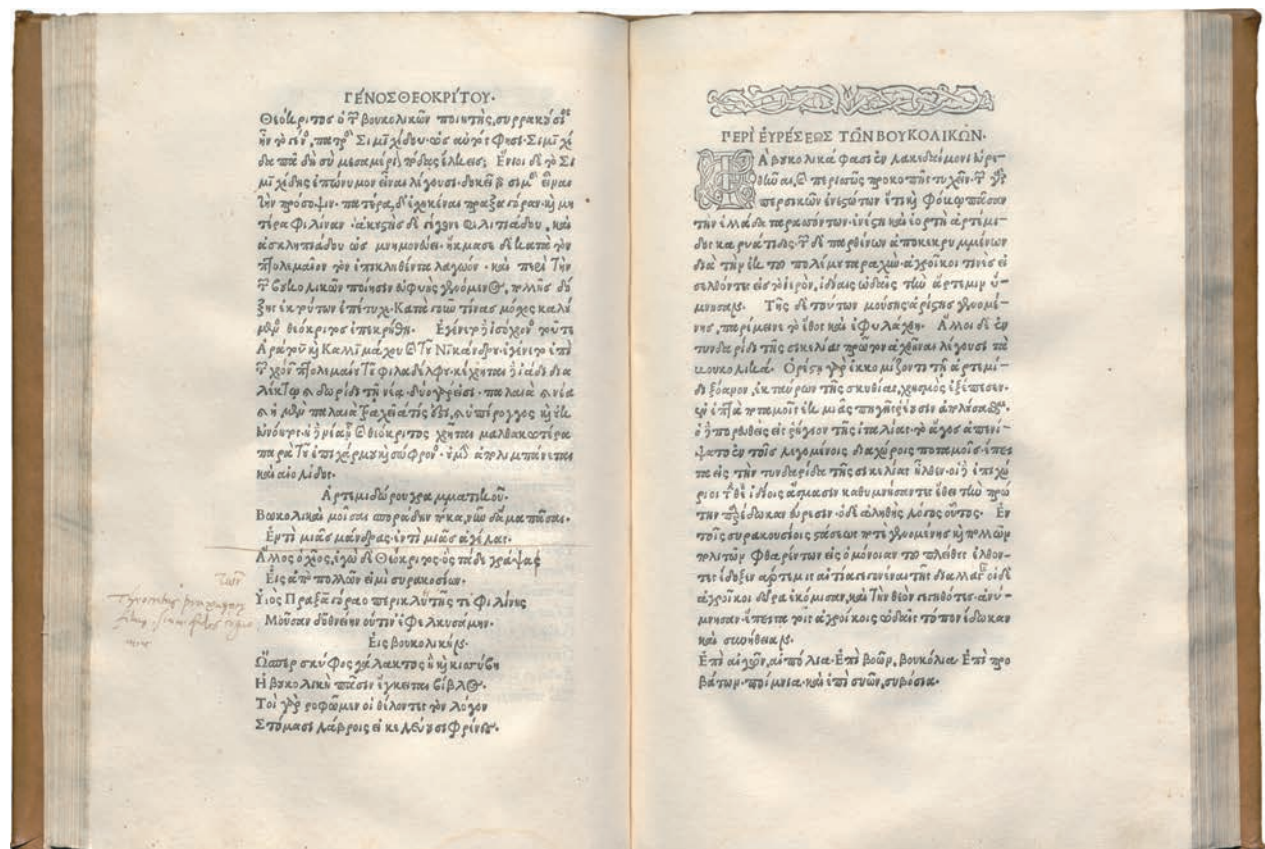 ΓΈΝΟΣ ΘΕΟΚΡΊΤΟΥ.
Θεόκριτος ὁ τῶν βουκολικῶν ποιητὴς, συρρακούσιος
ἦν τὸ γένος, πατρὸς Σιμιχίδου· ὡς αὐτός φησι· Σιμιχί
δα πᾶ δὴ σὺ μεσαμέριον πόδας ἕλκεις; Ἔνιοι δὲ τὸ Σι
μιχίδης ἐπώνυμον εἶναι λέγουσι· δοκεῖ γὰρ σιμὸς εἶναι
τὴν πρόσοψιν· πατέρα, δ' ἐσχηκέναι πραξαγόραν· καὶ μη
τέρα Φιλίναν· ἀκουστὴς δὲ γέγονε φιλιτάδου, καὶ
ἀσκληπιάδου ὧν μνημονεύει· ἤκμασε δὲ κατὰ τὸν
πτολεμαῖον τὸν ἐπικληθέντα λαγωόν· καὶ περὶ τὴν
τῶν βουκολικῶν ποίησιν εὐφυὴς γενόμενος, πολλῆς δό
ξης ἐπέτυχε· Κατὰ γοῦν τίνας μόσχος καλού
μενος θεόκριτος ἐπεκρήθη. Ἐγένετο δὲ ἰσόχρονος τοῦτε
Ἀράτου καὶ Καλλιμάχου καὶ τοῦ Νικάνδρου· ἐγένετο ἐπὶ
τῶν χρόνων πτολεμαίου τοῦ φιλαδέλφου· κέχρηται δὲ ἰάδι δια
λέκτῳ καὶ δωρίδι τῇ νέᾳ· δύο γάρ εἰσι· παλαιὰ καὶ νέα
καὶ ἡ μὲν παλαιὰ τραχεῖά τίς ἐστι, καὶ ὑπέρογκος καὶ
ἡ δὲ νέα ᾗ θεόκριτος χρῆται μαλθακωτέρα
παρὰ τοῦ ἐπιχάρμου καὶ σώφρονος· ἀπολιμπάνεται
καὶ αἰολίδος.
Ἀρτεμιδώρου γραμματικοῦ.
Βωκολικαὶ μοῖσαι σποράδην ποκα, νῦν δ' ἅμα πᾶσαι.
Ἐντὶ μιᾶς μάνδρας, ἐντὶ μιᾶς ἀγέλας.
Ἄλλος ὁ χῖος, ἐγὼ δὲ Θεόκριτος ὃς τάδε γράψας
Εἷς ἀπὸ πολλῶν εἰμὶ συρακοσίων.
τῶν
Ὑιὸς Πραξαγόραο περικλύτης τε Φιλίνης
Μοῦσαν δ' ὀθνείην οὔτιν ἐφελκυσάμην.
Εἰς βουκολικήν.
Ὥσπερ σκύφος γάλακτος ἢ καὶ κισσύβη
Ἡ βυκολικὴ πᾶσιν ἔγκειται βίβλος.
Τοὶ γὰρ ροφῶμεν οἱ θέλοντες τὸν λόγον
Στόμασι λάβροις εἰ κελεύουσι φρένες.
ΠΕΡῚ ΕΥΡΈΣΕΩΣ ΤΩ͂Ν ΒΟΥΚΟΛΙΚΩ͂Ν.
ΤΑ βυκολικά φασι ἐν λακεδαίμονι εὑρε-
θῆναι, καὶ περισσῶς προκοπῆς τυχεῖν· τῶν γὰρ
περσικῶν ἐνεστώτων ἔτι καὶ φόβῳ πᾶσαν
τὴν ἑλλάδα ταρασσόντων· ἐνέστη καὶ ἑορτὴ ἀρτέμι-
δος καρυάτιδος· τῶν δὲ παρθένων ἀποκεκρυμμένων
διὰ τὴν ἐκ τοῦ πολέμου ταραχὴν· ἀγροῖκοι τινὲς εἰ
σελθόντες εἰς τὸ ἱερὸν, ἰδίαις ᾠδαῖς τὴν ἄρτεμιν ὕ-
μνησαν. Τῆς δὲ τούτων μούσης ἀρέσης γενομέ-
νης, παρέμεινε τὸ ἔθος καὶ ἐφυλάχθη. Ἄλλοι δὲ ἐν
τυνδαρίδι τῆς σικελίας πρῶτον ἀχθῆναι λέγουσι τὰ
βουκολικά. Ὀρέστῃ γὰρ ἐκκομίζοντι τῇ ἀρτέμι-
δι ξόανον, ἐκ ταύρων τῆς σκυθίας, χρησμὸς ἐξέπεσεν·
ἐν ἑπτὰ ποταμοῖς ἐκ μιᾶς πηγῆς ῥέουσιν ἀπολούσασθαι.
ὁ δὲ πορευθεὶς εἰς ῥήγιον τῆς ἰταλίας· τὸ ἄγος ἀπενί-
ψατο ἐν τοῖς λεγομένοις διαχώροις ποταμοῖς· ἔπει
τα εἰς τὴν τυνδαρίδα τῆς σικελίας ἦλθεν· οἱ δὲ ἐπιχώ
ριοι τὴν θεὸν ἰδίοις ἄσμασιν καθυμνήσαντες ἔθει τὴν πρώ
την παρέδωκαν εὕρεσιν· ὁ δὲ ἀληθὴς λόγος οὗτος. Ἐν
τοῖς συρακουσίοις στάσεως ποτε γενομένης καὶ πολλῶν
πολιτῶν φθαρέντων εἰς ὁμόνοιαν τοῦ πλείθους ἐλθον-
τες ἔδοξεν ἄρτεμις αἰτία γεγονέναι τῆς διαλλαγῆς οἱ δὲ
ἀγροῖκοι δῶρα ἐκόμισαν, καὶ τὴν θεὸν γεγηθότες, ἀνύ-
μνησαν· ἔπειτα ταῖς ἀγροίκοις ᾠδαῖς τόπον ἔδωκαν
καὶ συνήθειαν.
Ἐπὶ αἰγῶν, αἰπόλια· Ἐπὶ βοῶν, βουκόλια· Ἐπὶ προ
βάτων· ποίμνια· καὶ ἐπὶ συῶν, συβόσια.